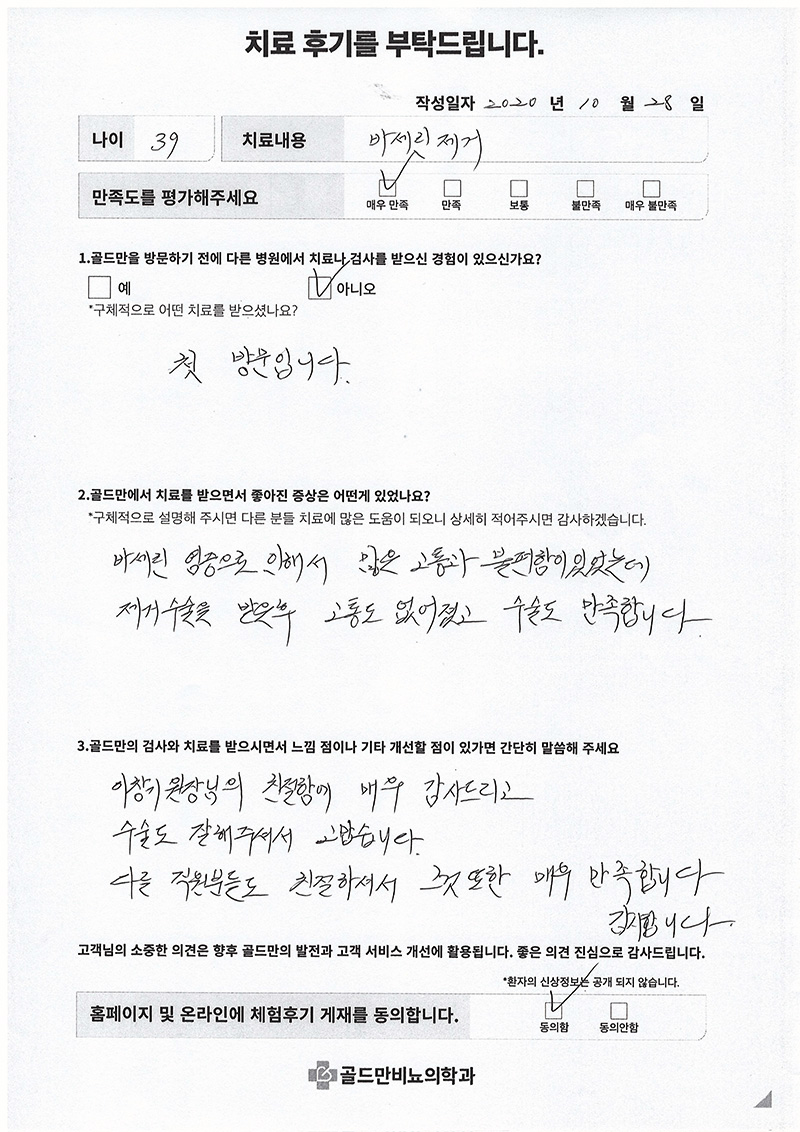 치료 후기를 부탁드립니다.
작성일자 2020 년 10 월 28 일
나이 39 치료내용 바세린 제거
만족도를 평가해주세요
매우 만족 만족 보통 불만족 매우 불만족
1.골드만을 방문하기 전에 다른 병원에서 치료나 검사를 받으신 경험이 있으신가요?
예 아니오
*구체적으로 어떤 치료를 받으셨나요?
첫 방문입니다.
2.골드만에서 치료를 받으면서 좋아진 증상은 어떤게 있었나요?
*구체적으로 설명해 주시면 다른 분들 치료에 많은 도움이 되오니 상세히 적어주시면 감사하겠습니다.
바세린 염증으로 인해서 많은 고통과 불편함이있었는데
제거수술을 받은후 고통도 없어졌고 수술도 만족합니다
3.골드만의 검사와 치료를 받으시면서 느낌 점이나 기타 개선할 점이 있가면 간단히 말씀해 주세요
이창기 원장님의 친절함에 매우 감사드리고
수술도 잘해주셔서 고맙습니다.
다를 직원분들도 친절하셔서 그것 또한 매우 만족합니다
감사합니다.
고객님의 소중한 의견은 향후 골드만의 발전과 고객 서비스 개선에 활용됩니다. 좋은 의견 진심으로 감사드립니다.
*환자의 신상정보는 공개 되지 않습니다.
홈페이지 및 온라인에 체험후기 게재를 동의합니다.
동의함 동의안함
골드만비뇨의학과